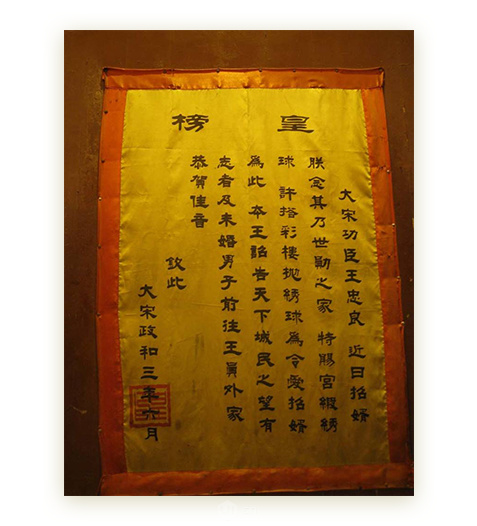 皇榜
大宋功臣王忠良 近日招婿
朕念其乃世勋之家 特赐宫缎绣
球 许搭彩楼抛绣球为令爱招婿
为此 本王诏告天下城民之望有
志者及未婚男子前往王员外家
恭贺佳音
钦此
大宋政和三年六月